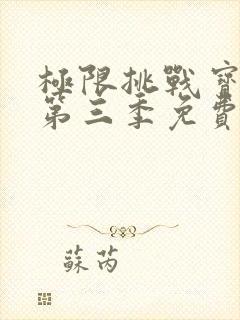 極限挑戰寶
第三季免費
蘇芮